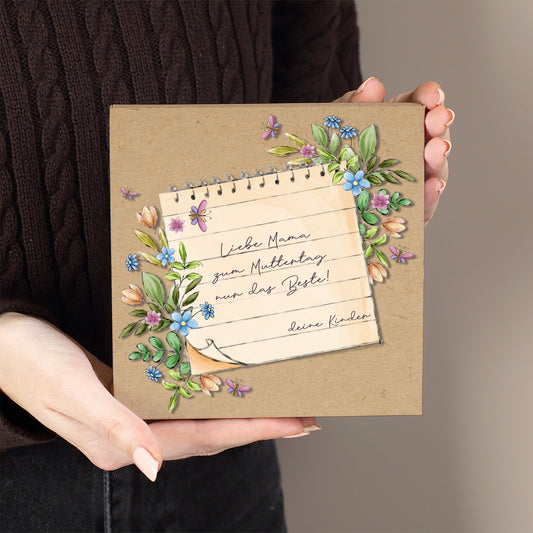 Liebe Mama
zum Muttertag
nur das Beste!
deine Kinder